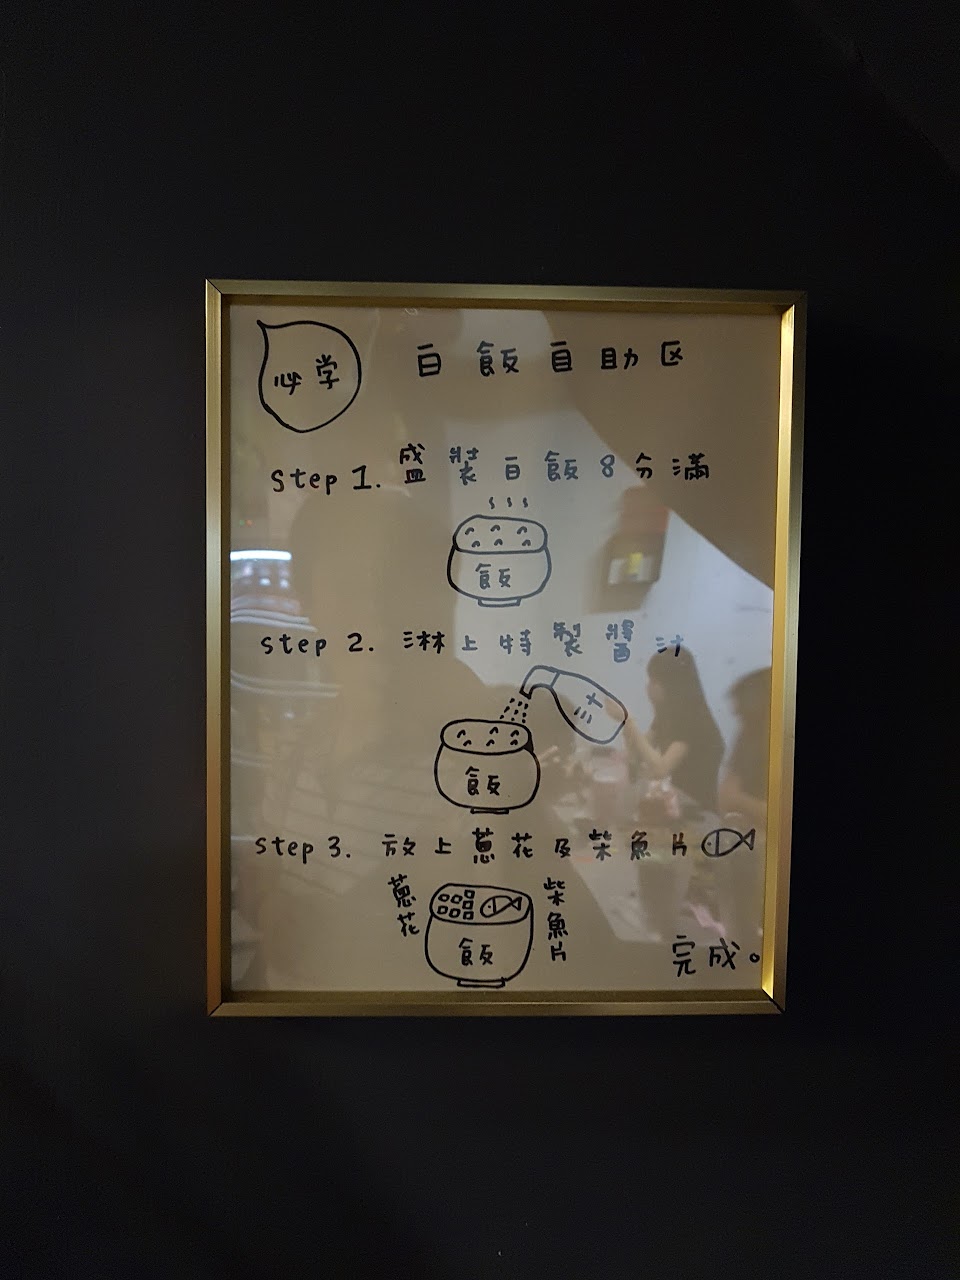 必学
白飯自助区
step 1. 盛裝白飯8分滿
飯
step 2. 淋上特製醬汁
汁
飯
step 3. 放上蔥花及柴魚片
蔥花
柴魚片
飯
完成。